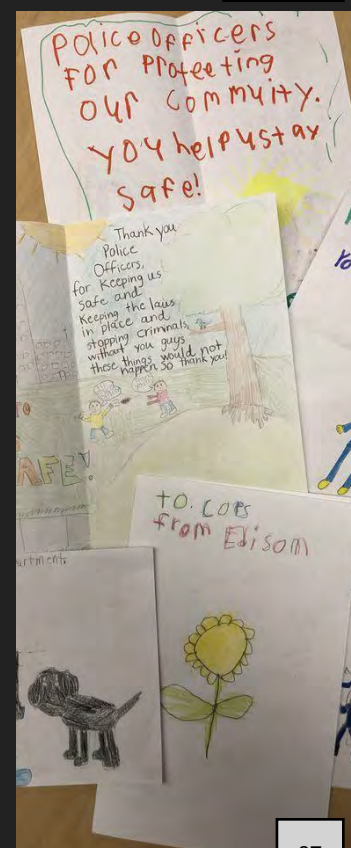 Police Officers
For Protecting
our Commuity.
you help us stay
safe!
Thank you
Police
Officers,
for Keeping us
safe and
Keeping the laws
in place and
stopping criminals,
without you guys
these things would not
happen, so thank you!
to. cops
from Edisom